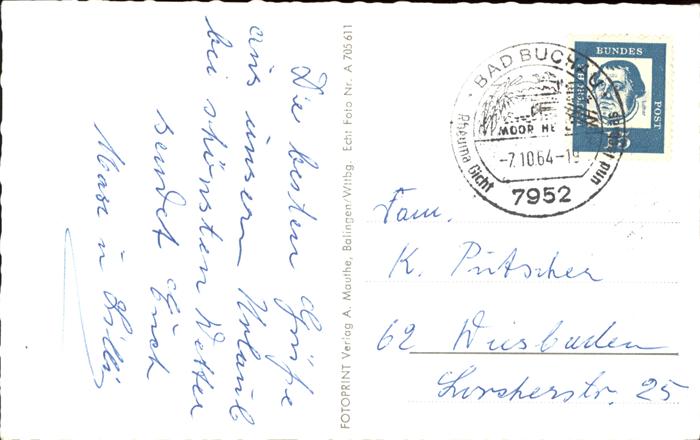 Die besten Grüße
aus unserm Urlaub
bei schönsten Wetter
sendet Euch
FOTOPRINT Verlag A. Mauthe, Balingen/Wttbg. Echt Foto Nr. A 705 611
BAD BUCHAU
MOOR HE
-7.10.64-19
Rheuma Gicht
und
7952
BUNDES
POST
Fam.
K. Pütscher
62 Wiesbaden
Lorcherstr. 25